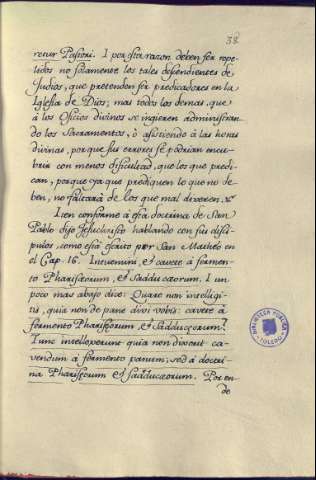 38
retur Pastori. I por esta razon deben ser rope-
lidos no solamente los tales desendientes de
Judios, que pretenden ser predicadores en la
Iglesia de Dios; mas todos los demas, que
à los Oficios divinos se ingieren administran-
do los Sacramentos, ò asistiendo à las horas
divinas, porque sus errores se podrian encu-
brir con menos dificultad, que los que predi-
can, porque ya que prediquen lo que no de-
ben, no faltará de los que mal dixeren.
Iten conforme à esta doctrina de San
Pablo dijo Jesuchristo hablando con sus disci-
pulos, como está escrito por San Matheo en
el Cap. 16. Intuemini, et cavete à fermento
Pharisæorum, et Sadducæorum. I un
poco mas abajo dize: Quare non intelligi-
tis, quia non de pane dixi vobis: cavete à
fermento Pharisæorum, et Sadducæorum?
Tunc intellexerunt quia non dixerit ca-
vendum à fermento panum; sed à doctri-
na Pharisæorum et Sadducæorum. Por en-
de
BIBLIOTECA PUBLICA
TOLEDO